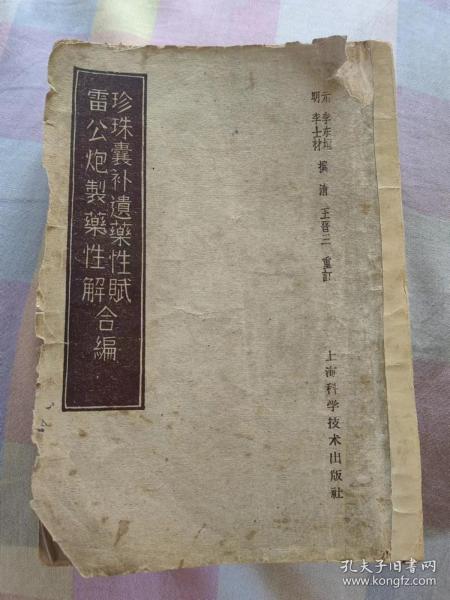 元 李东垣
明 李士材
撰 清 王晋三 重訂
珍珠囊补遺藥性賦
雷公炮製藥性解
合編
上海科学技术出版社
孔夫子旧书网
www.kongfz.com